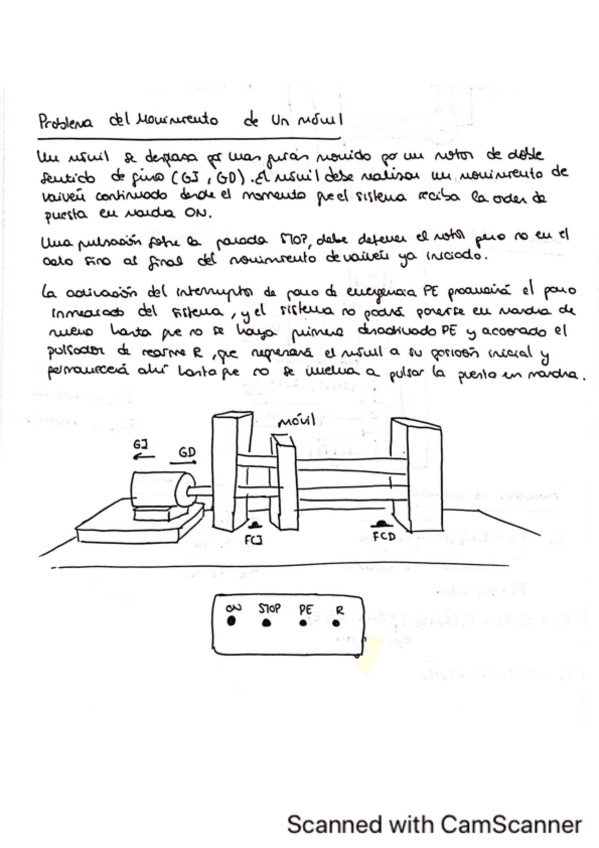 Problema del Movimiento de un móvil
Un móvil se desplaza por unas guías movido por un motor de doble
sentido de giro (GI, GD). El móvil debe realizar un movimiento de
vaivén continuado desde el momento que el sistema reciba la orden de
puesta en marcha ON.
Una pulsación sobre la parada STOP, debe detener el motor pero no en el
acto sino al final del movimiento de vaivén ya iniciado.
La activación del interruptor de paro de emergencia PE provocará el paro
inmediato del sistema, y el sistema no podrá ponerse en marcha de
nuevo hasta que no se haya primero desactivado PE y accionado el
pulsador de rearme R, que regresará el móvil a su posición inicial y
permanecerá ahí hasta que no se vuelva a pulsar la puesta en marcha.
móvil
GI
GD
FCI FCD
ON STOP PE R
Scanned with CamScanner